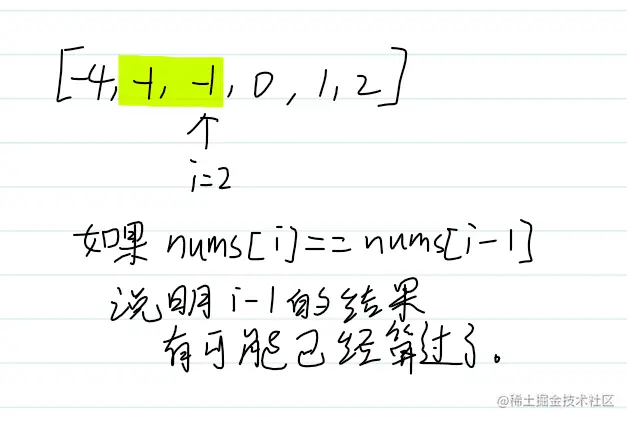 [-4, -1, -1, 0, 1, 2]
↑
i=2
如果 nums[i]==nums[i-1]
说明 i-1的结果
有可能已经算过了。
@稀土掘金技术社区